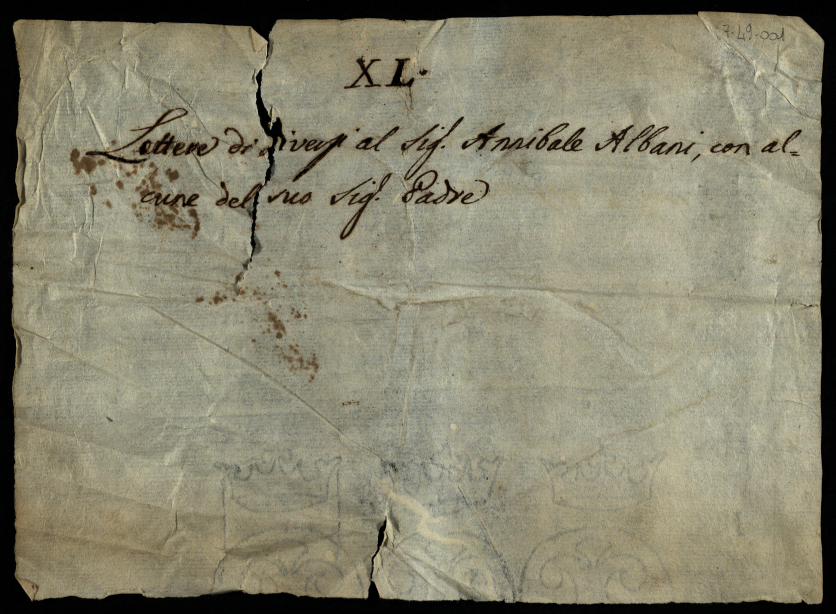 7-49-001
XL.
Lettere di diversi al Sig.r Annibale Albani, con al=
cune del suo Sig.r Padre